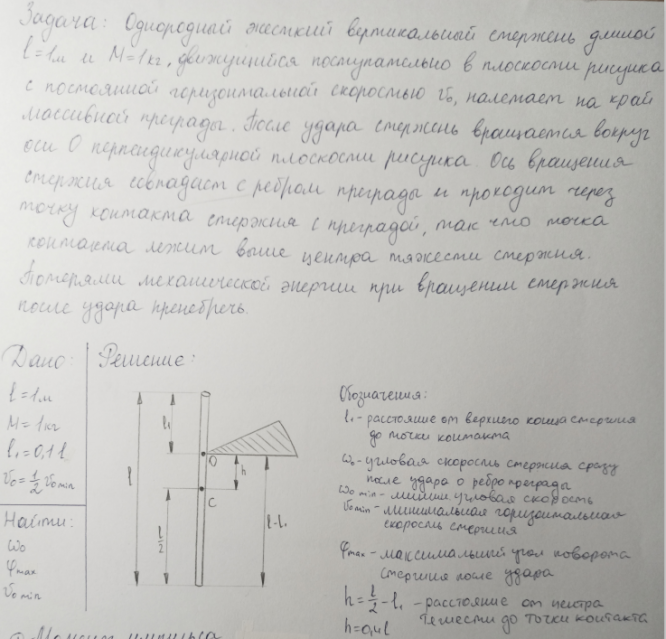 Задача: Однородный жесткий вертикальный стержень длиной
l=1м и M=1кг, движущийся поступательно в плоскости рисунка
с постоянной горизонтальной скоростью v₀, налетает на край
массивной преграды. После удара стержень вращается вокруг
оси О перпендикулярной плоскости рисунка. Ось вращения
стержня совпадает с ребром преграды и проходит через
точку контакта стержня с преградой, так что точка
контакта лежит выше центра тяжести стержня.
Потерями механической энергии при вращении стержня
после удара пренебречь.
Дано:
l=1м
M=1кг
l₁=0,1l
v₀=½v₀ min
Найти:
ω₀
φmax
v₀ min
Решение:
l
l₁
O
h
C
l/2
l-l₁
Обозначения:
l₁ - расстояние от верхнего конца стержня
до точки контакта
ω₀ - угловая скорость стержня сразу
после удара о ребро преграды
ω₀ min - миним угловая скорость
v₀ min - минимальная горизонтальная
скорость стержня
φmax - максимальный угол поворота
стержня после удара
h = l/2 - l₁ - расстояние от центра
тяжести до точки контакта
h=0,4l
Момент импульса